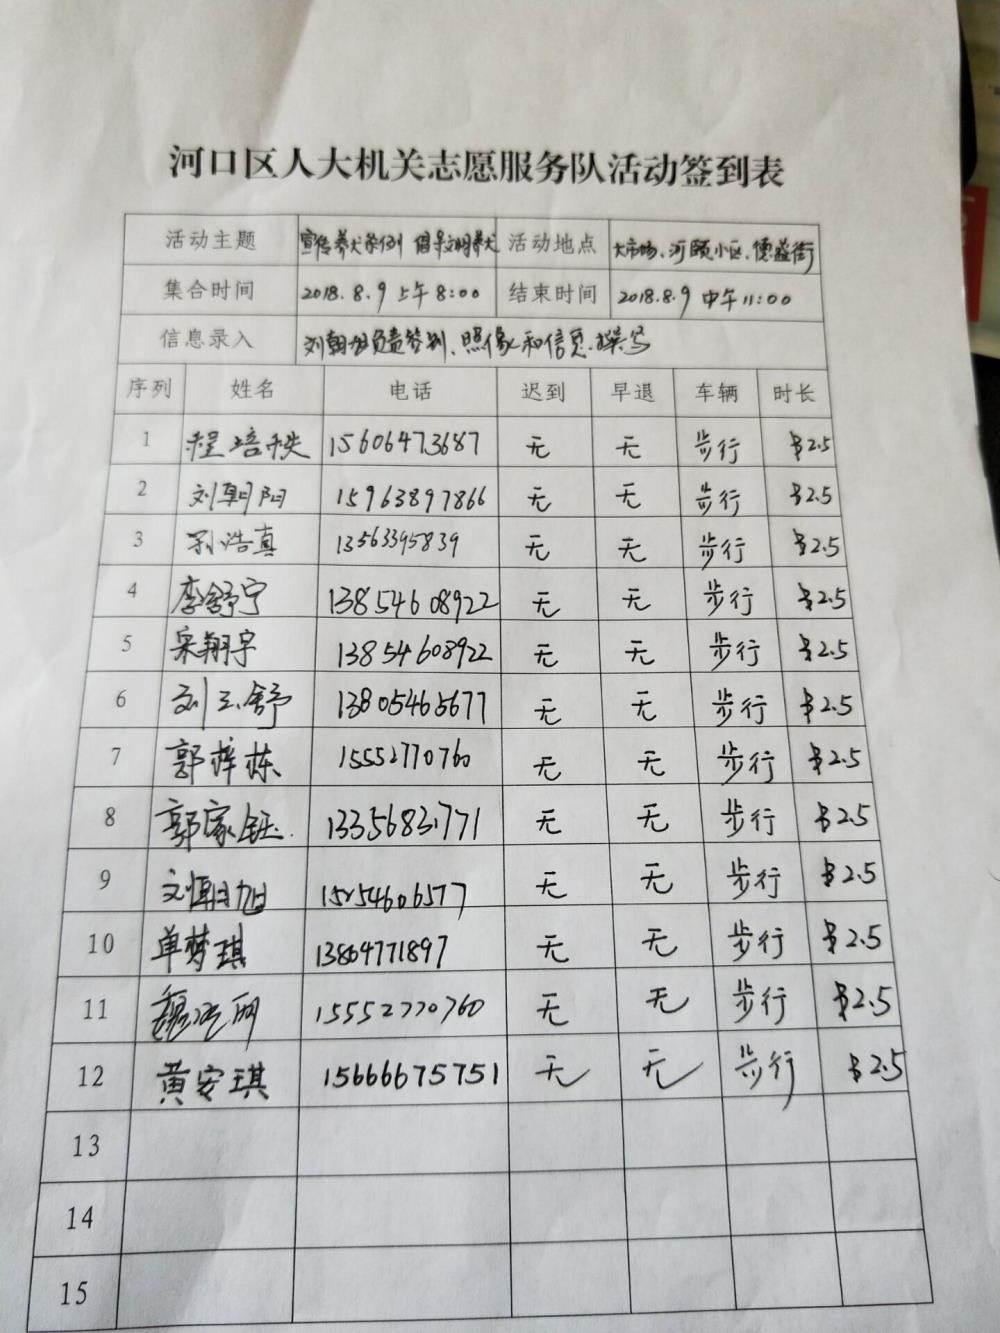 河口区人大机关志愿服务队活动签到表
活动主题 宣传养犬条例 倡导文明养犬 活动地点 大市场、河颐小区、德益街
集合时间 2018.8.9 上午8:00 结束时间 2018.8.9 中午11:00
信息录入 刘朝旭负责签到、照像和信息撰写
序列 姓名 电话 迟到 早退 车辆 时长
1 程培秩 15606473687 无 无 步行 2.5
2 刘朝阳 15963897866 无 无 步行 2.5
3 孙浩真 13563395839 无 无 步行 2.5
4 李舒宁 13854608922 无 无 步行 2.5
5 宋翔宇 13854608922 无 无 步行 2.5
6 刘 舒 13805465677 无 无 步行 2.5
7 郭梓栋 15552770760 无 无 步行 2.5
8 郭家钰 13356831771 无 无 步行 2.5
9 刘朝旭 15254606577 无 无 步行 2.5
10 单梦琪 13864771897 无 无 步行 2.5
11 15552770760 无 无 步行 2.5
12 黄安琪 15666675751 无 无 步行 2.5
13
14
15